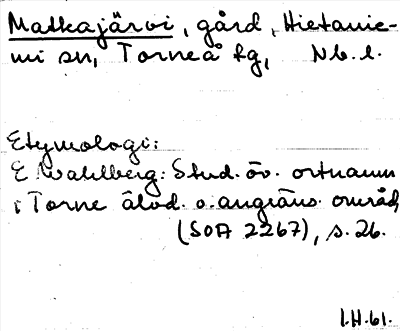 Matkajärvi, gård, Hietanie-
mi sn, Torneå fg, Nb. l.
Etymologi:
E Wahlberg: Stud. öv. ortnamn
i Torne älvd. o. angräns. områd.
(SOA 2267), s. 26.
I.H.61.